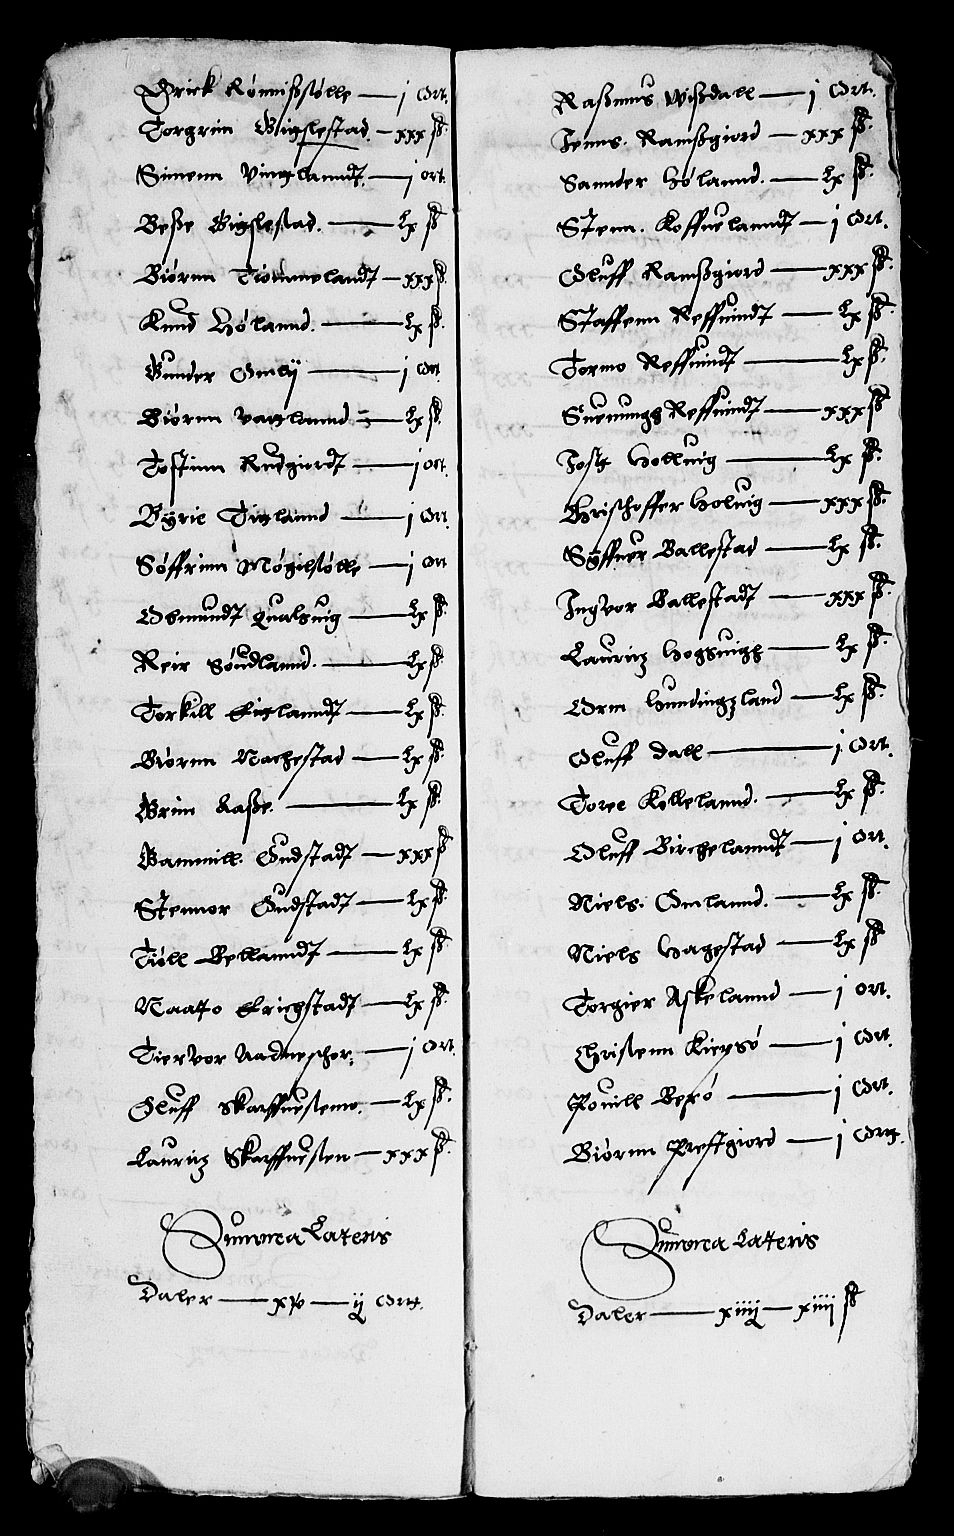 Erick Rønnißstølle — j Ort.
Torgrim Gigslestad — xxx ß.
Simenn Vinglanndt — j ort.
Beße Gigslestad. — Lx ß
Biørnn Tiommelandt — xxx ß.
Knud Hølannd. — Lx ß.
Gunder Omlij — j Ort
Biørnn Vaglannd — Lx ß.
Tostinn Rusgiordt — j Ort.
Byrie Tiglannd — j Ort.
Søffrinn Møgilstølle — j Ort
Osmundt Qualsuig — Lx ß.
Reir Søudlannd. — Lx ß
Torkill Eiglanndt — Lx ß.
Biørnn Nachestad — Lx ß.
Grim Aaße. — Lx ß.
Gammill Gudstadt — xxx ß
Stennor Gudstadt — Lx ß.
Tiøll Bellanndt — Lx ß.
Naatto Erichstadt — Lx ß.
Tiervor Aadneschor: — j Ort.
Oluff Skarffuestenn. — Lx ß.
Lauritz Skarffuesten — xxx ß.
Summa Lateris
Daler — xv — ij Ortt.
Raßmus Wißdall — j Ort.
Jenns. Ramßgiord — xxx ß.
Sannder Hølannd. — Lx ß.
Stenn. Koffuelanndt — j Ort.
Oluff Ramßgiord — xxx ß.
Staffenn Reffuindt — Lx ß.
Tormo Reffuindt — Lx ß.
Suenungh Reffuindt — xxx ß
Jost Holluig — Lx ß.
Christoffer Holuig — xxx ß.
Syffuer Ballestad — Lx ß.
Jngvor Ballestadt — xxx ß.
Lauritz Hogsuigh — Lx ß.
Orm Hundingzland — Lx ß.
Oluff Dall — j Ort.
Toree Kollelannd. — Lx ß.
Oluff Birchelanndt — j Ort.
Niels. Omlannd. — Lx ß.
Niels Hagestad — Lx ß
Torgier Askelannd — j ort.
Christenn Kirpsø — j Ort.
Pouill Berø — j Ort.
Biørnn Prestgiord — j Ortt.
Summa Lateris
Daler — xiiij — xiiij ß